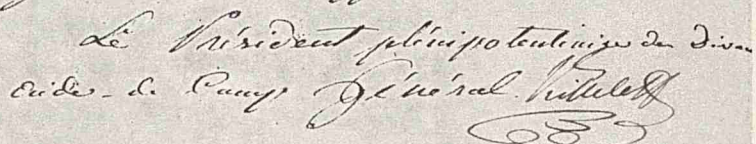 Le Président plénipotentiaire du Divan
Aide-de Camp Général